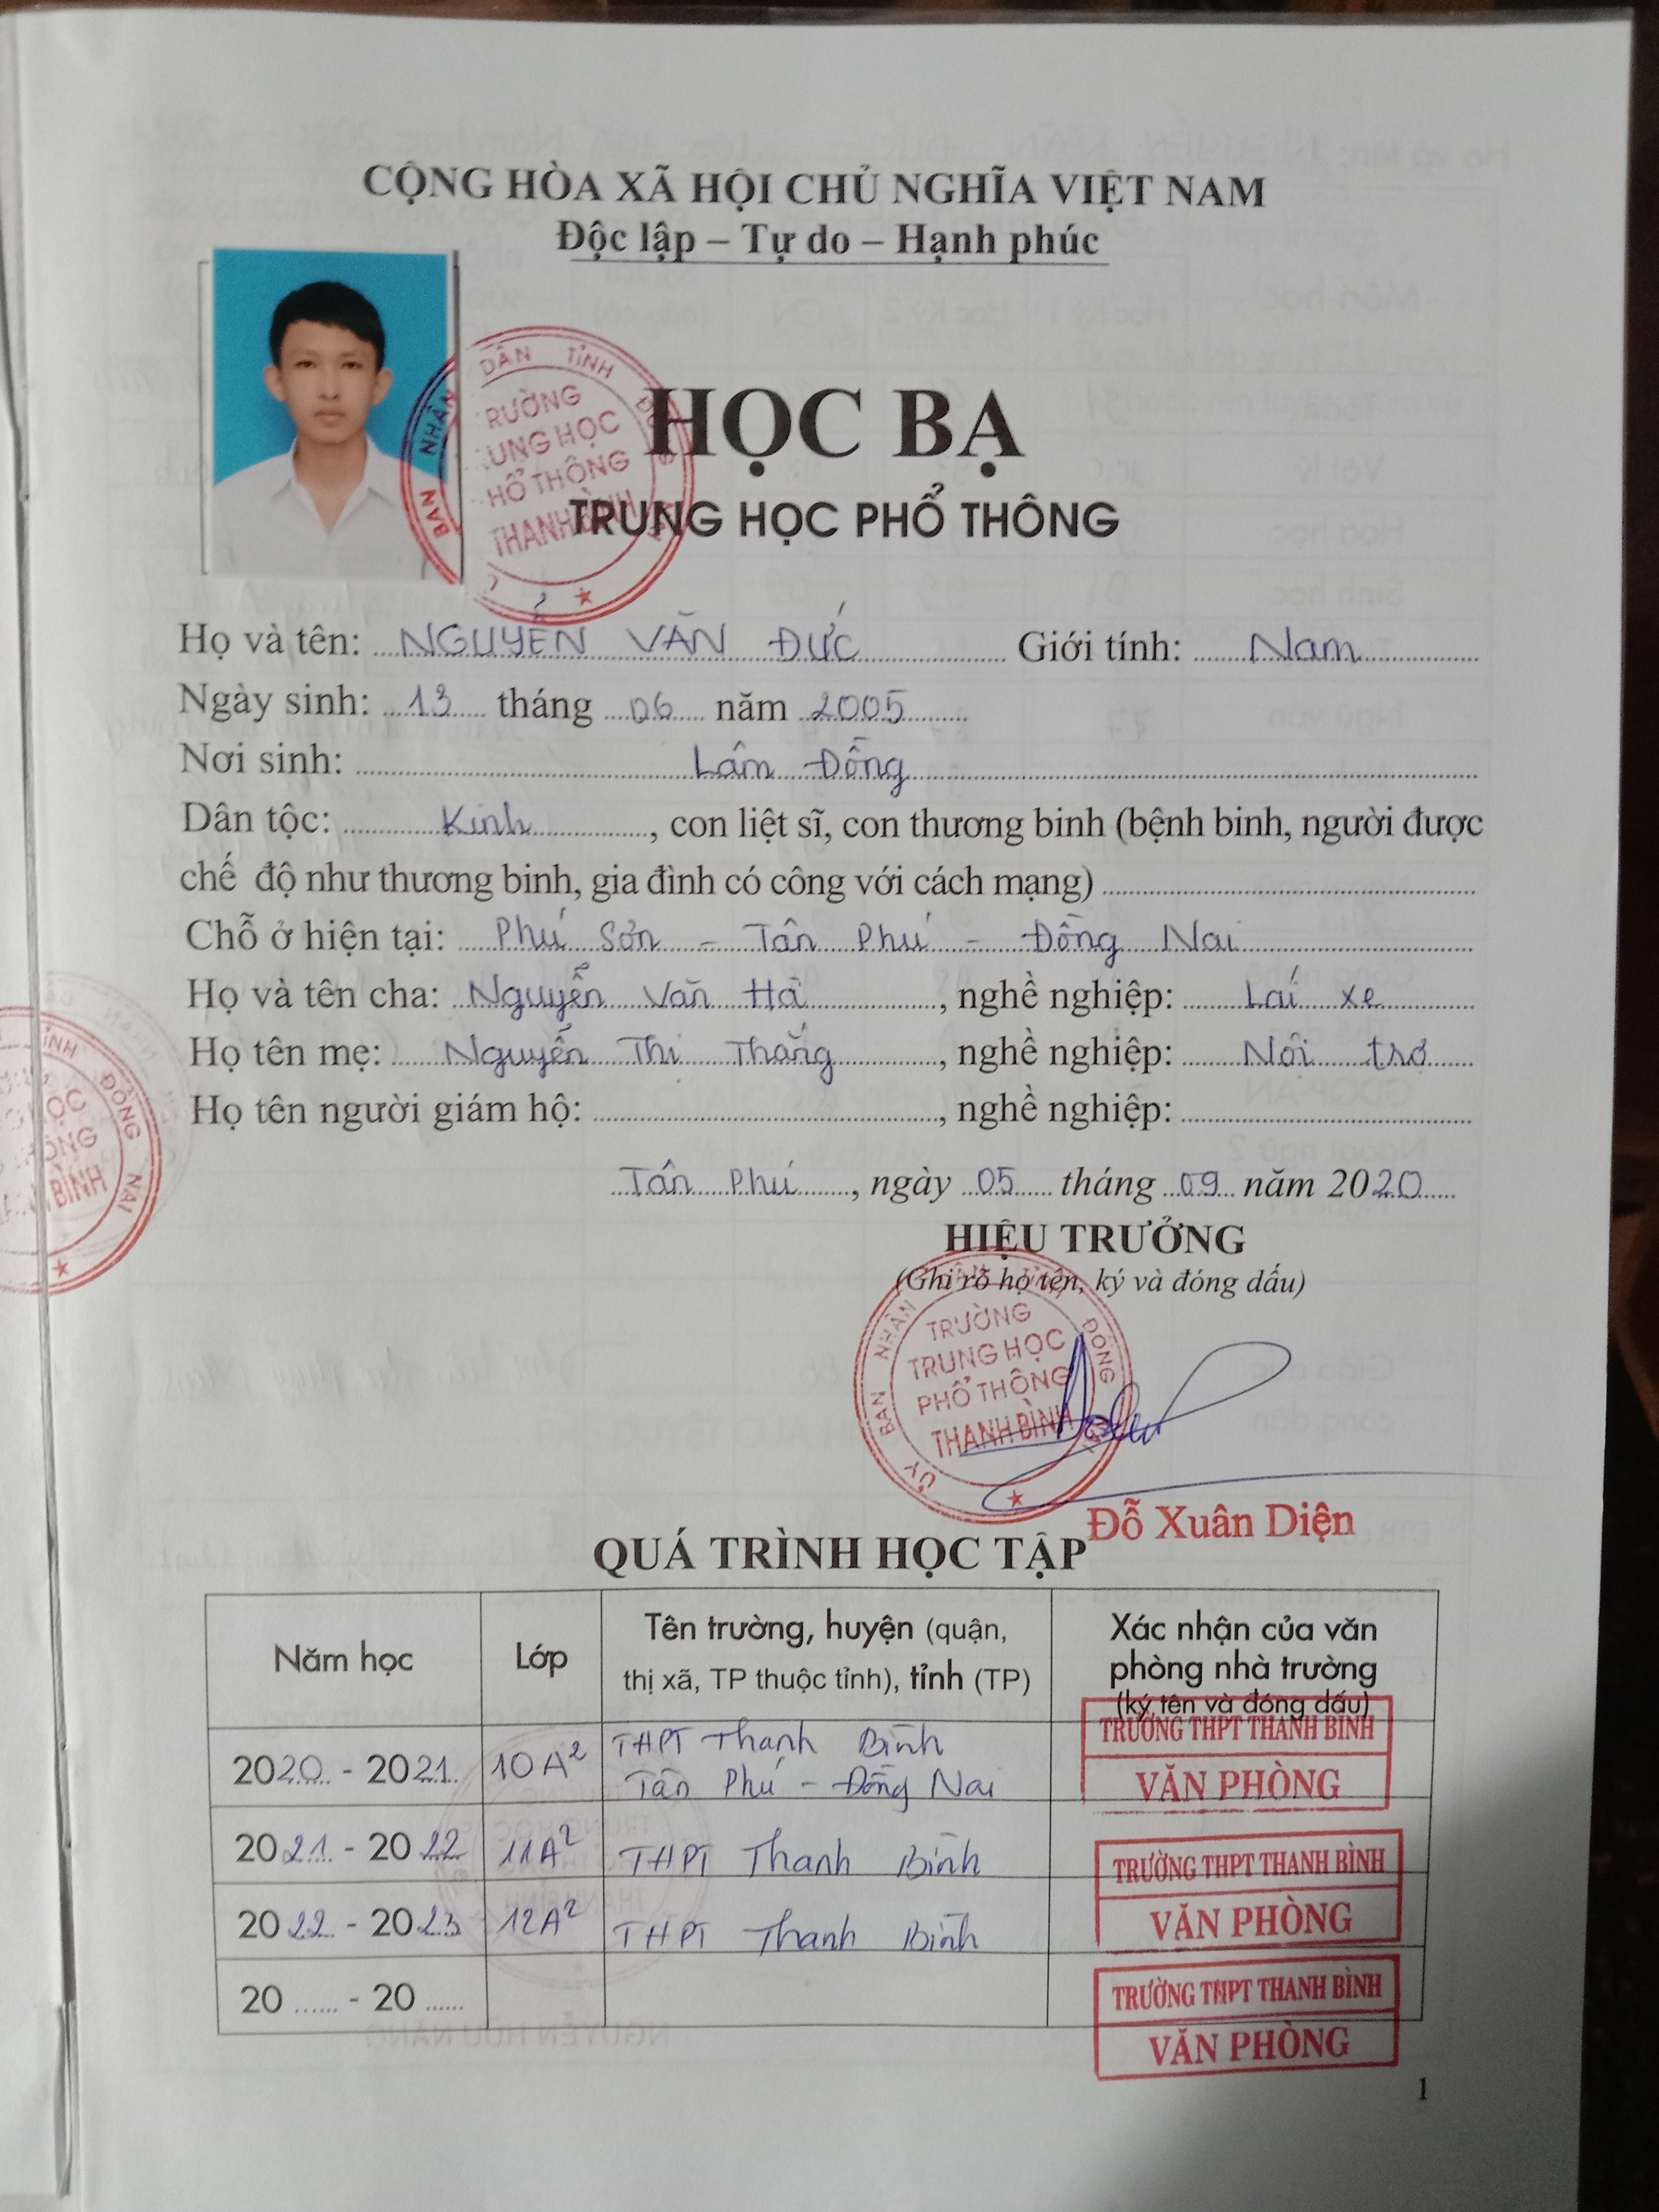 CỘNG HÒA XÃ HỘI CHỦ NGHĨA VIỆT NAM
Độc lập – Tự do – Hạnh phúc
BAN NHÂN DÂN TỈNH ĐỒNG
RƯỜNG
UNG HỌC
HỔ THÔNG
THANH BÌNH
HỌC BẠ
TRUNG HỌC PHỔ THÔNG
Họ và tên: NGUYỄN VĂN ĐỨC Giới tính: Nam
Ngày sinh: 13 tháng 06 năm 2005
Nơi sinh: Lâm Đồng
Dân tộc: Kinh, con liệt sĩ, con thương binh (bệnh binh, người được
chế độ như thương binh, gia đình có công với cách mạng)
Chỗ ở hiện tại: Phú Sơn - Tân Phú - Đồng Nai
Họ và tên cha: Nguyễn Văn Hà, nghề nghiệp: Lái xe
Họ tên mẹ: Nguyễn Thị Thắng, nghề nghiệp: Nội trợ
Họ tên người giám hộ: , nghề nghiệp:
TỈNH ĐỒNG NAI
BÌNH
Tân Phú, ngày 05 tháng 09 năm 2020
HIỆU TRƯỞNG
(Ghi rõ họ tên, ký và đóng dấu)
ỦY BAN NHÂN ĐỒNG
TRƯỜNG
TRUNG HỌC
PHỔ THÔNG
THANH BÌNH
Đỗ Xuân Diện
QUÁ TRÌNH HỌC TẬP
Năm học Lớp Tên trường, huyện (quận, thị xã, TP thuộc tỉnh), tỉnh (TP) Xác nhận của văn phòng nhà trường (ký tên và đóng dấu)
2020 - 2021 10A² THPT Thanh Bình
Tân Phú - Đồng Nai
TRƯỜNG THPT THANH BÌNH
VĂN PHÒNG
2021 - 2022 11A² THPT Thanh Bình
TRƯỜNG THPT THANH BÌNH
VĂN PHÒNG
2022 - 2023 12A² THPT Thanh Bình
TRƯỜNG THPT THANH BÌNH
VĂN PHÒNG
20 ...... - 20 ......
1